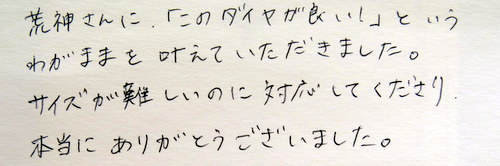 荒神さんに、「このダイヤが良い!」という
わがままを叶えていただきました。
サイズが難しいのに対応してくださり、
本当にありがとうございました。